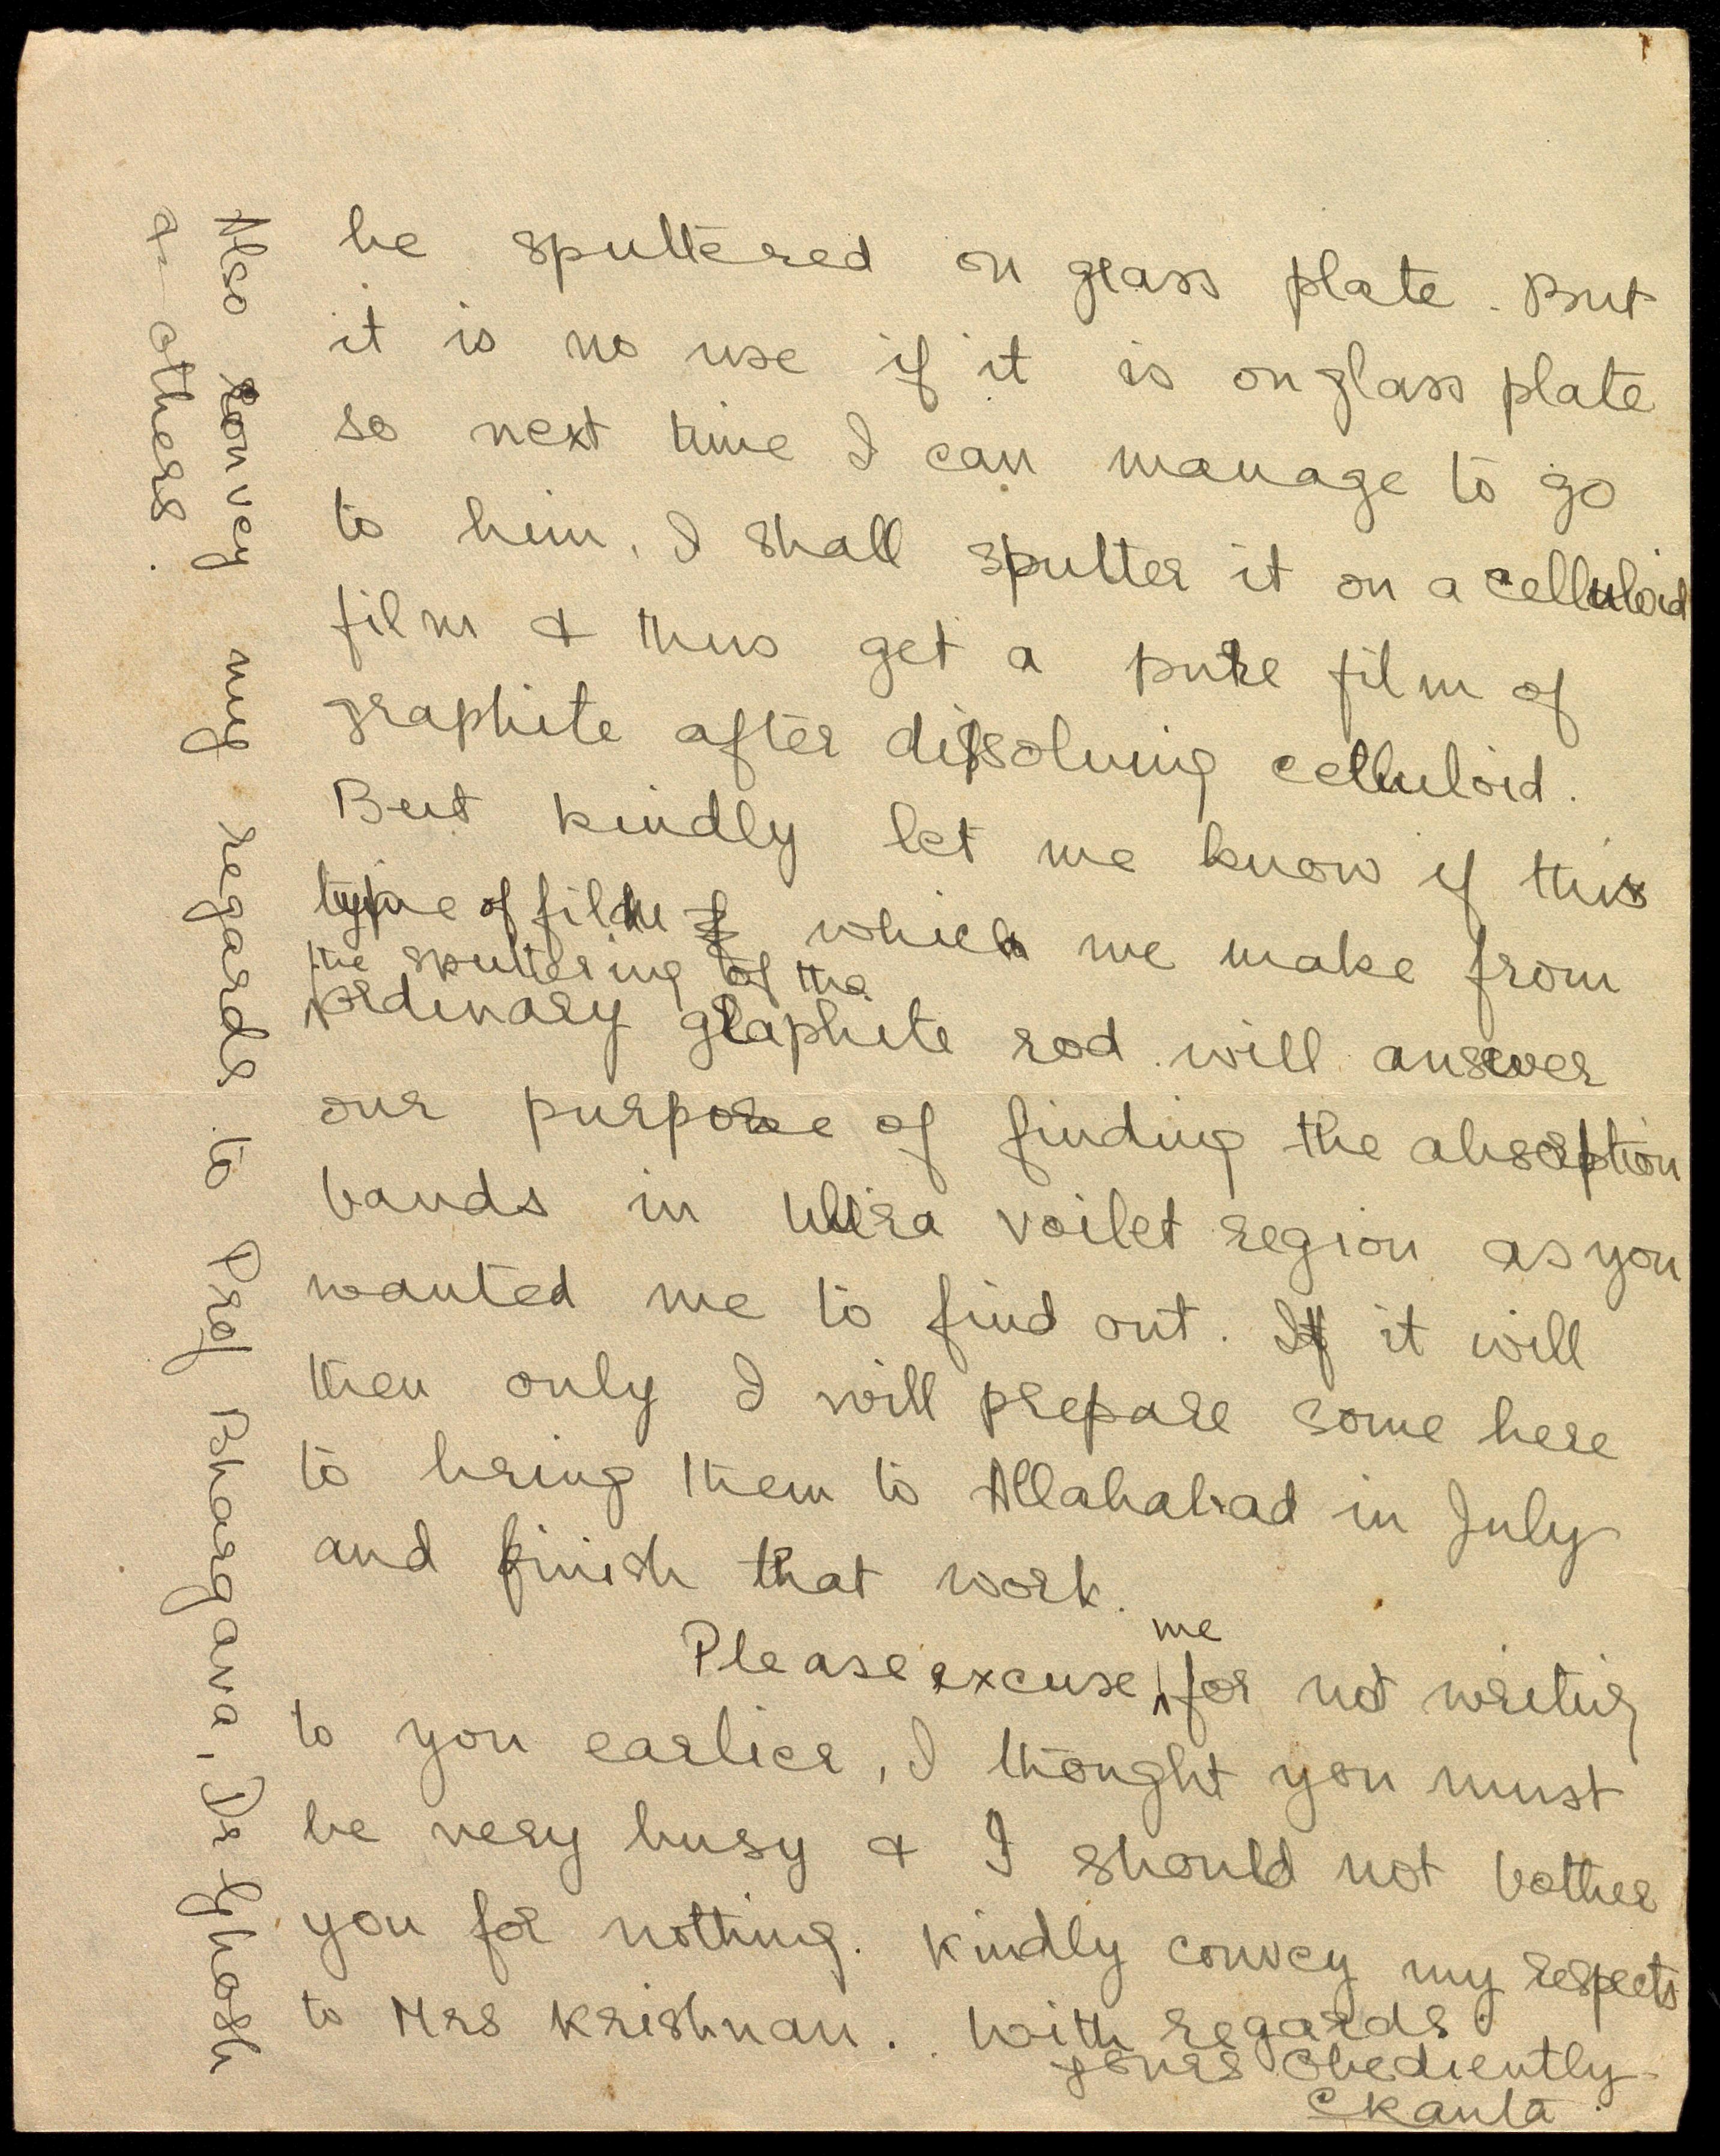 be sputtered on glass plate. But
it is no use if it is on glass plate
so next time I can manage to go
to him, I shall sputter it on a celluloid
film & thus get a pure film of
graphite after dissolving celluloid.
But kindly let me know if this
type of film which we make from
the sputtering of the
ordinary graphite rod will answer
our purpose of finding the absorption
bands in Ultra voilet region as you
wanted me to find out. If it will
then only I will prepare some here
to bring them to Allahabad in July
and finish that work.
me
Please excuse for not writing
to you earlier, I thought you must
be very busy & I should not bother
you for nothing. Kindly convey my respects
to Mrs Krishnan. With regards
yours obediently
CKanta.
Also convey my regards to Prof Bhargava, Dr Ghosh
& others.